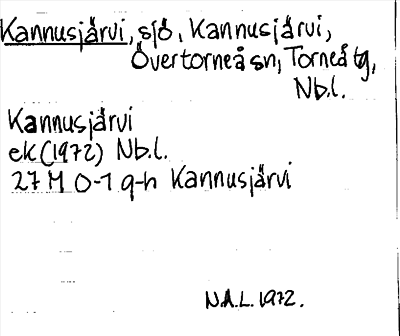 Kannusjärvi, sjö, Kannusjärvi,
Övertorneå sn, Torneå tg,
Nb.l.
Kannusjärvi
ek (1972) Nb.l.
27 M 0-1 g-h Kannusjärvi
N.A.L. 1972.